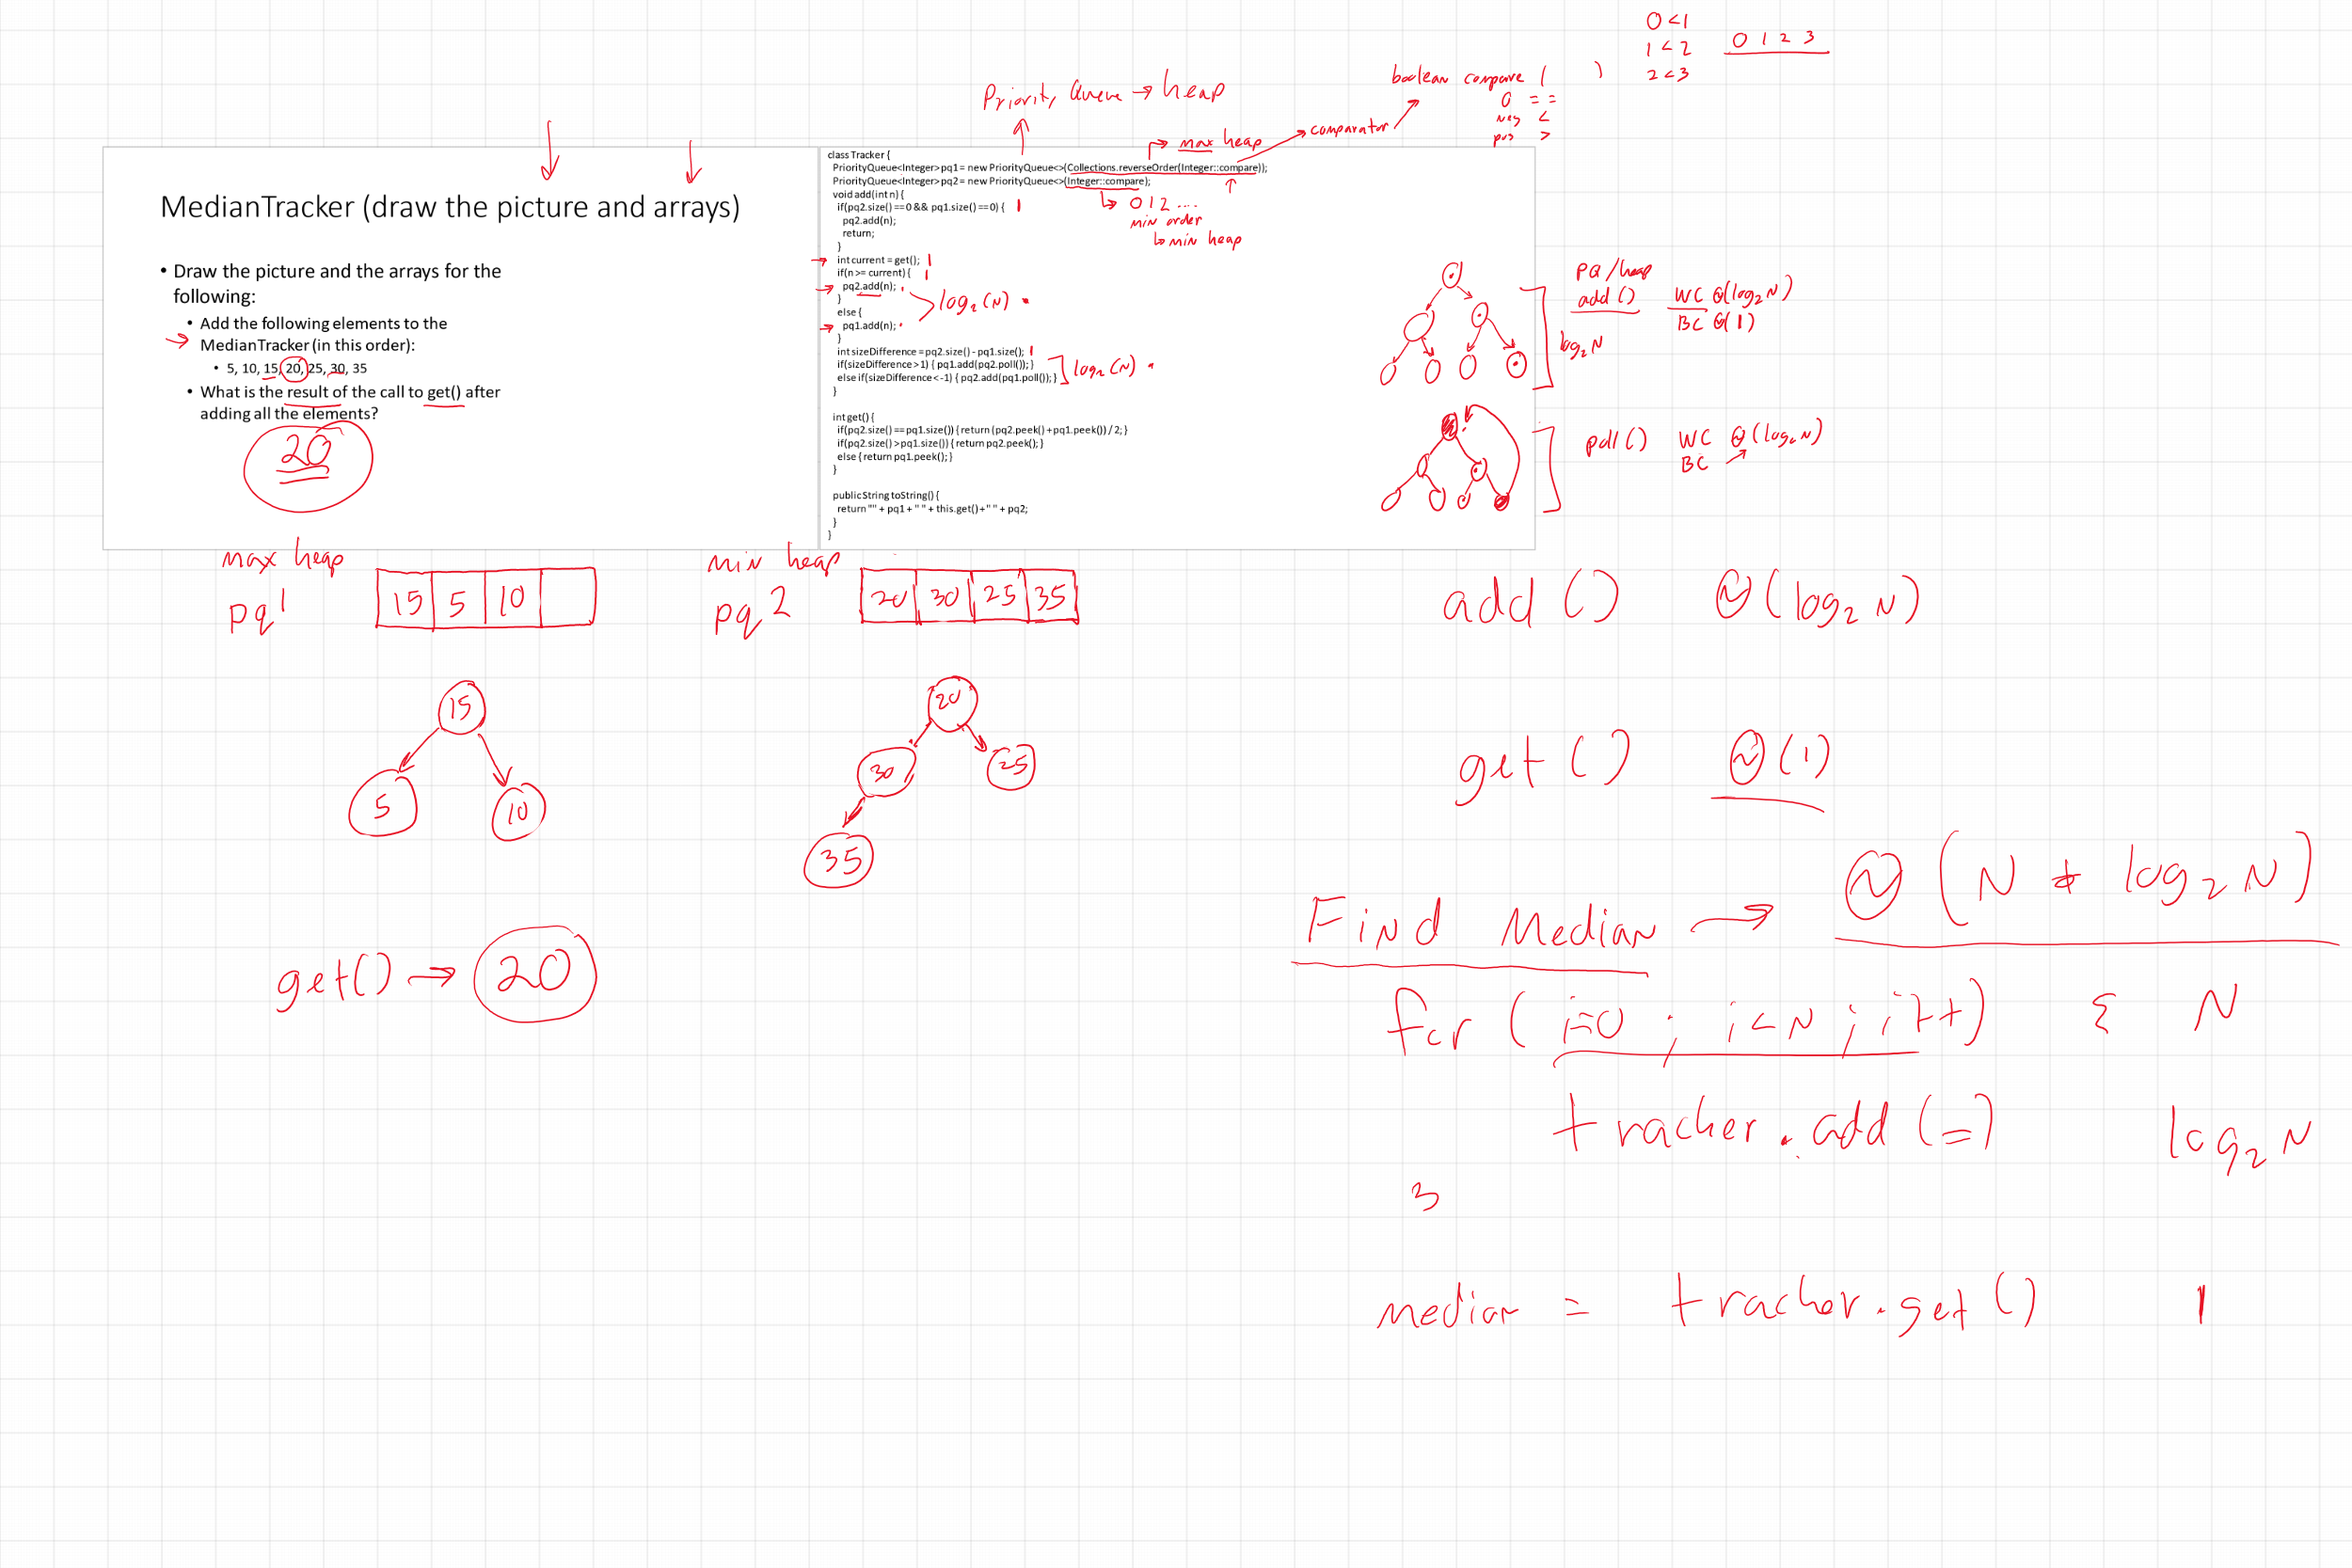 0 < 1
1 < 2
2 < 3
0 1 2 3
boolean compare ( )
0 ==
neg <
pos >
Priority Queue → heap
→ max heap
→ comparator
MedianTracker (draw the picture and arrays)
• Draw the picture and the arrays for the
following:
• Add the following elements to the
MedianTracker (in this order):
• 5, 10, 15, 20, 25, 30, 35
• What is the result of the call to get() after
adding all the elements?
20
class Tracker {
PriorityQueue<Integer> pq1 = new PriorityQueue<>(Collections.reverseOrder(Integer::compare));
PriorityQueue<Integer> pq2 = new PriorityQueue<>(Integer::compare);
void add(int n) {
if(pq2.size() == 0 && pq1.size() == 0) { 1
pq2.add(n);
return;
}
int current = get(); 1
if(n >= current) { 1
pq2.add(n);
}
else {
pq1.add(n);
}
int sizeDifference = pq2.size() - pq1.size(); 1
if(sizeDifference > 1) { pq1.add(pq2.poll()); }
else if(sizeDifference < -1) { pq2.add(pq1.poll()); }
}
int get() {
if(pq2.size() == pq1.size()) { return (pq2.peek() + pq1.peek()) / 2; }
if(pq2.size() > pq1.size()) { return pq2.peek(); }
else { return pq1.peek(); }
}
public String toString() {
return "" + pq1 + " " + this.get() + " " + pq2;
}
}
0 1 2 ....
min order
↳ min heap
log₂(N)
log₂(N)
log₂N
PQ/heap
add() WC Θ(log₂N)
BC Θ(1)
poll() WC Θ(log₂N)
BC
max heap
pq1
15 5 10
min heap
pq2
20 30 25 35
15
5 10
20
30 25
35
get() → 20
add() Θ(log₂N)
get() Θ(1)
Find Median → Θ(N * log₂N)
for (i=0; i<N; i++) { N
tracker.add(=) log₂N
}
median = tracker.get() 1